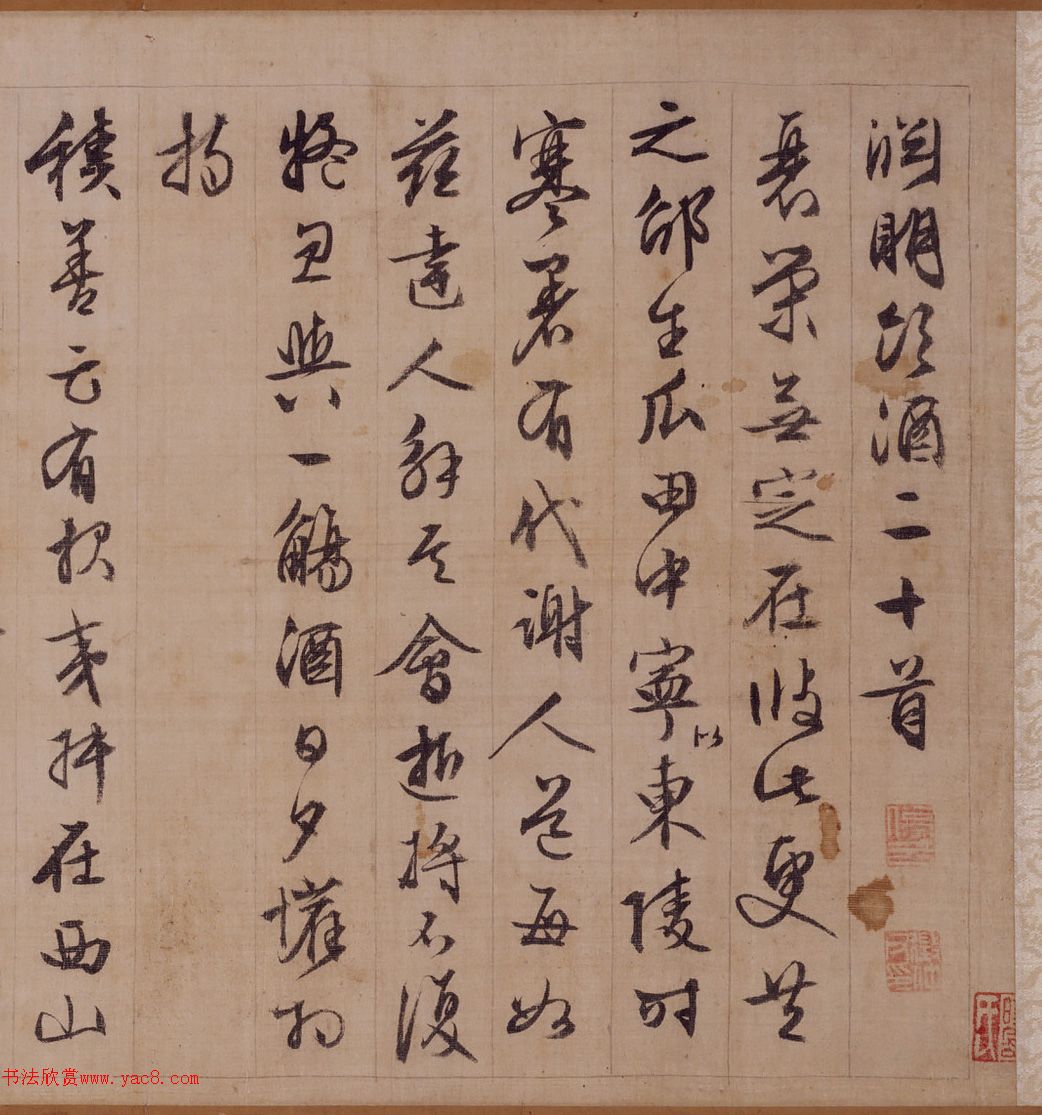 淵明飲酒二十首
衰榮無定在彼此更共
之邵生瓜田中寧似東陵時
寒暑有代謝人道每如
茲達人解其會逝將不復
疑忽與一觴酒日夕懽相
持
積善云有報夷叔在西山
书法欣赏www.yac8.com